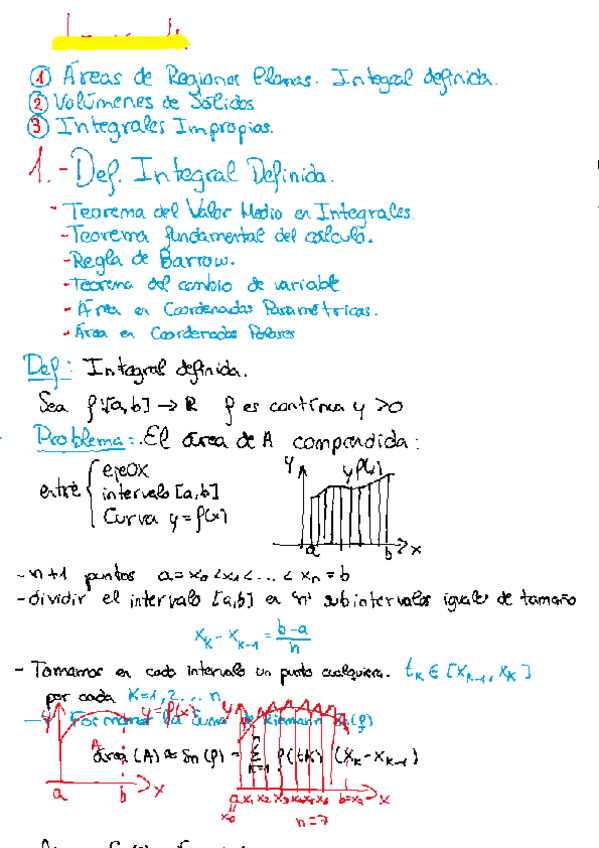 ① Áreas de Regiones Planas. Integral definida.
② Volúmenes de Sólidos
③ Integrales Impropias.
1.- Def. Integral Definida.
- Teorema del Valor Medio en Integrales.
- Teorema fundamental del cálculo.
- Regla de Barrow.
- Teorema del cambio de variable
- Área en Coordenadas Paramétricas.
- Área en Coordenadas Polares
Def: Integral definida.
Sea f:[a,b] → R f es continua y >0
Problema: El área de A comprendida:
entre { eje OX
intervalo [a,b]
Curva y = f(x)
y y f(x)
a b x
- n+1 puntos a = x₀ < x₁ < ... < xₙ = b
- dividir el intervalo [a,b] en "n" subintervalos iguales de tamaño
x_K - x_{K-1} = (b-a)/n
- Tomamos en cada intervalo un punto cualquiera. t_K ∈ [x_{K-1}, x_K]
por cada K=1,2... n
→ Formamos la suma de Riemann Sn(f)
y y=f(x) y
A área (A) ≈ Sn(f) = Σ_{K=1}^{n} f(tK) (x_K - x_{K-1})
a b x
a x₁ x₂ x₃ x₄ x₅ x₆ b=x₇ x
x₀
n=7